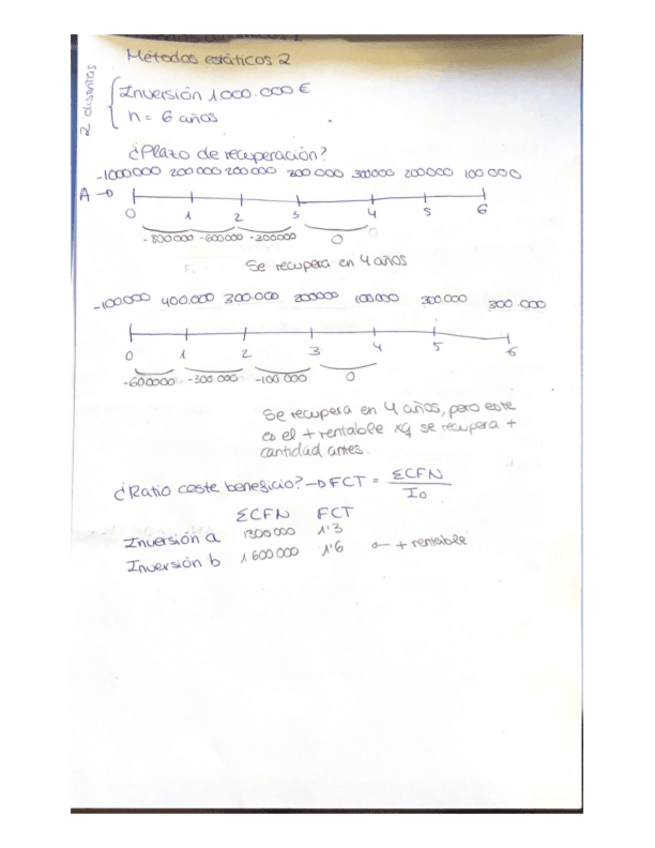 Métodos estáticos 2
2 distintas
Inversión 1000.000 €
n = 6 años
¿Plazo de recuperación?
-1000000 200000 200000 300000 300000 200000 100000
A →
0 1 2 3 4 5 6
-800000 -600000 -300000 0
Se recupera en 4 años
-100000 400.000 300.000 200000 100000 300000 300.000
0 1 2 3 4 5 6
-600000 -300000 -100000 0
Se recupera en 4 años, pero este
es el + rentable xq se recupera +
cantidad antes.
¿Ratio coste beneficio? → FCT = ΣCFN / I0
ΣCFN FCT
Inversión a 1300000 1'3
Inversión b 1600000 1'6 ← + rentable